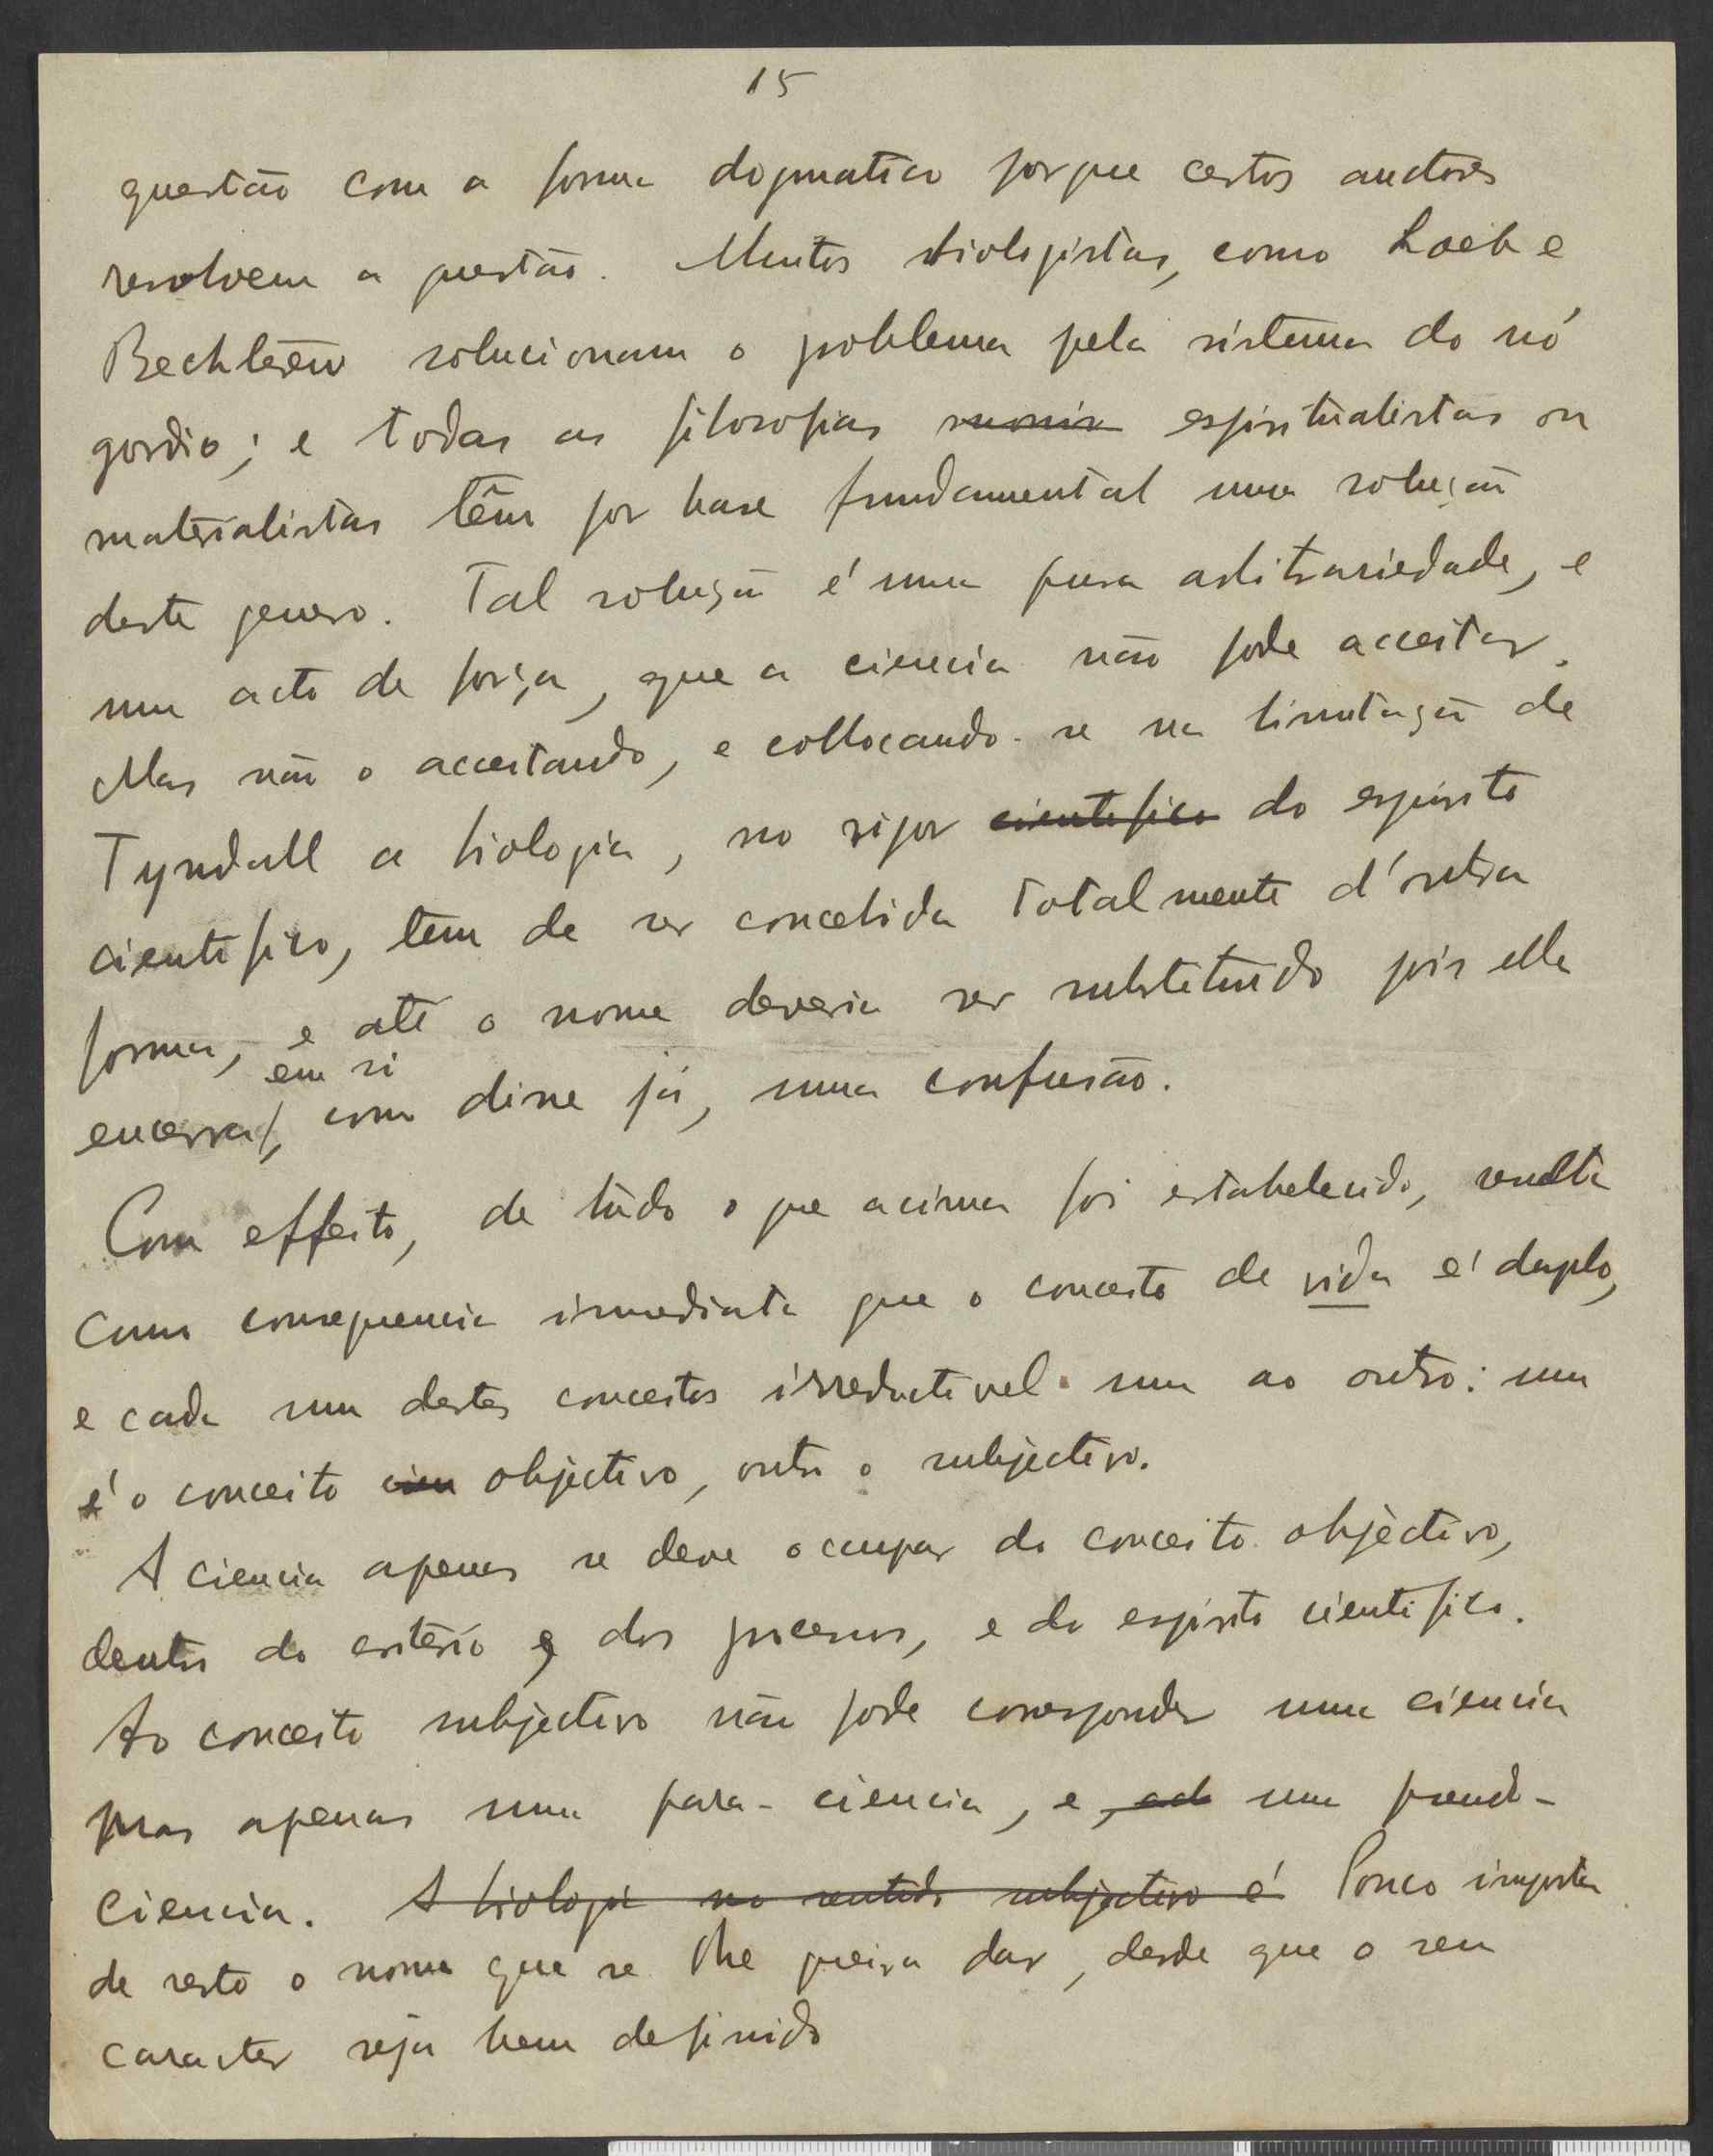 15
questão com a forma dogmatica porque certos auctores
resolvem a questão. Muitos biologistas, como Loeb e
Bechterew solucionam o problema pela sistema do nó
gordio; e todas as filosofias monis espiritualistas ou
materialistas têm por base fundamental uma solução
deste genero. Tal solução é uma pura arbitrariedade, e
um acto de força, que a ciencia não pode acceitar.
Mas não o acceitando, e collocando-se na limitação de
Tyndall a biologia, no rigor cientifico do espirito
cientifico, tem de ser concebida totalmente d'outra
forma, e até o nome deveria ser substituido pois ella
em si
encerra, como disse já, uma confusão.
Com effeito, de tudo o que acima foi estabelecido, resulta
como consequencia immediata que o conceito de vida é duplo,
e cada um destes conceitos irreductivel um ao outro: um
é o conceito cien objectivo, outro o subjectivo.
A ciencia apenas se deve occupar do conceito objectivo,
dentro do criterio e dos processos, e do espirito cientifico.
Ao conceito subjectivo não pode corresponder uma ciencia
mas apenas uma para-ciencia, e uma pseudo-
ciencia. A biologia no sentido subjectivo é Pouco importa
de resto o nome que se lhe queira dar, desde que o seu
caracter seja bem definido